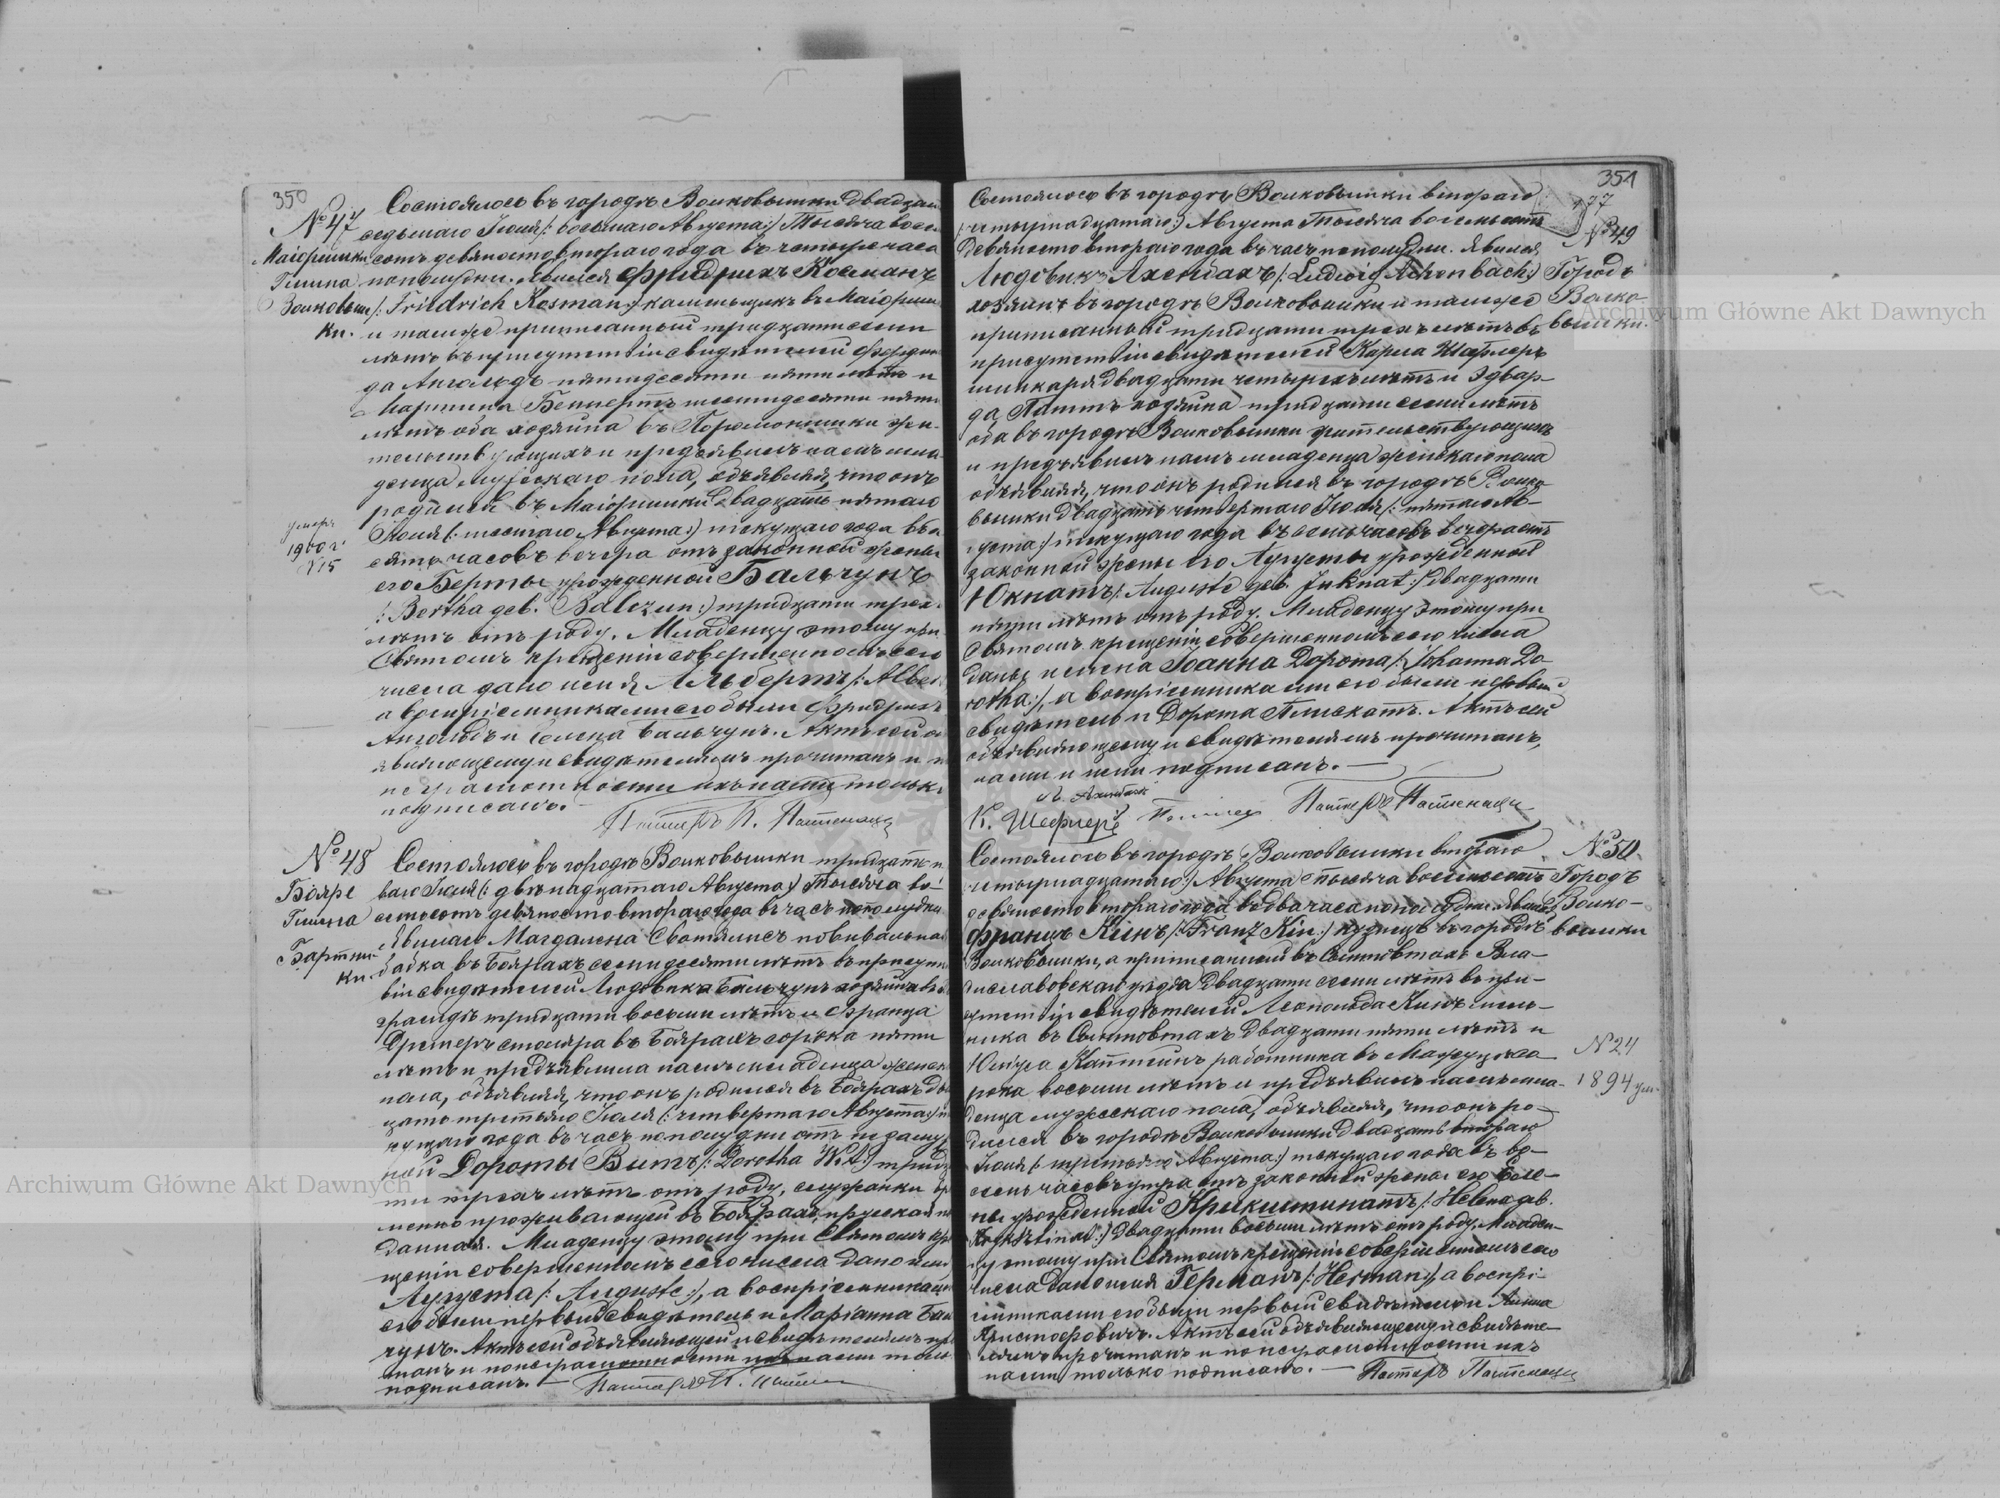 350
№ 47
Маіоришки
Гмина
Волковыш
ки.
умеръ
1900 г.
№ 15
Состоялось въ городѣ Волковышки двадцать
седьмаго Іюля /: восьмаго Августа:/ Тысяча восем
сотъ девяносто втораго года въ четыре часа
пополудни. Явился Фридрихъ Косманъ
/: Friedrich Kosman :/ каменьщикъ въ Маіориш
и тамже приписанный тридцати семи
лѣтъ въ присутствіи свидѣтелей Ферди
да Ангольдъ пятидесяти пяти лѣтъ и
Мартина Беннертъ шестидесяти пяти
лѣтъ оба хозяина въ жи
тельствующихъ и предъявилъ намъ мла
денца мужескаго пола, объявляя, что онъ
родился въ Маіоришки двадцать пятаго
Іюля /: шестаго Августа:/ текущаго года въ де
сять часовъ вечера отъ законной жены
его Берты урожденной Бальчунъ
/: Bertha geb. Balczun :/ тридцати трехъ
лѣтъ отъ роду. Младенцу этому при
Святомъ крещеніи совершенномъ сего
числа дано имя Альбертъ /: Alber
а воспріемниками его были Фридрихъ
Ангольдъ и Елена Бальчунъ. Актъ сей о
являющему и свидѣтелямъ прочитанъ и п
неграмотности ихъ нами только
подписанъ.
Пасторъ К.
№ 48
Бояре
Гмина
Бартни
ки.
Состоялось въ городѣ Волковышки тридцать п
ваго Іюля /: двѣнадцатаго Августа :/ Тысяча во
семьсотъ девяносто втораго года въ часъ пополудни
Явилась Магдалена повивальная
бабка въ Боярахъ семидесяти лѣтъ въ присутст
віи свидѣтелей Людовика Бальчунъ хозяина въ
тридцати восьми лѣтъ и Франца
столяра въ Боярахъ сорока пяти
лѣтъ и предъявила намъ младенца женск
пола, объявляя, что онъ родился въ Боярахъ два
цать третьяго Іюля /: четвертаго Августа:/ т
кущаго года въ часъ пополудни отъ незамуж
ней Дороты Витъ /: Dorotha Wit :/ тридц
ти трехъ лѣтъ отъ роду, служанки вр
менно проживающей въ Боярахъ, прусской по
данная. Младенцу этому при Святомъ кре
щеніи совершенномъ сего числа дано имя
Августа /: Auguste :/, а воспріемниками
его были первый свидѣтель и Маріанна Бал
чунъ. Актъ сей объявляющей и свидѣтелямъ про
танъ и по неграмотности ихъ нами толь
подписанъ. — Пасторъ К.
351
177
№ 49
Городъ
Волко
вышки.
Состоялось въ городѣ Волковышки втораго
/: четырнадцатаго:/ Августа Тысяча восемьсотъ
девяносто втораго года въ часъ пополудни. Явился
Людовикъ Ахенбахъ /: Ludwig Achenbach :/
хозяинъ въ городѣ Волковышки и тамже
приписанный тридцати трехъ лѣтъ въ
присутствіи свидѣтелей Карла Шефлеръ
шинкаря двадцати четырехъ лѣтъ и Эдвар-
да хозяина тридцати семи лѣтъ
оба въ городѣ Волковышки жительствующихъ
и предъявилъ намъ младенца женскаго пола
объявляя, что онъ родился въ городѣ Волко
вышки двадцать четвертаго Іюля /: пятаго Ав-
густа:/ текущаго года въ семь часовъ вечера отъ
законной жены его Августы урожденной
Юкнатъ /: Auguste geb. Juknat :/ двадцати
пяти лѣтъ отъ роду. Младенцу этому при
Святомъ крещеніи совершенномъ сего числа
даны имена Іоанна Дорота /: Johanna Do-
rotha :/, а воспріемниками его были первый
свидѣтель и Дорота Плискатъ. Актъ сей
объявляющему и свидѣтелямъ прочитанъ,
нами и ими подписанъ. —
Л. Ахенбахъ
К. Шефлеръ Пасторъ
№ 50.
Городъ
Волко-
вышки
№ 24
1894 ум.
Состоялось въ городѣ Волковышки втораго
/: четырнадцатаго:/ Августа тысяча восемьсотъ
девяносто втораго года въ два часа пополудни. Явился
Францъ Кинъ /: Franz Kin :/ кузнецъ въ городѣ
Волковышки, а приписанный въ Вла-
диславовскаго уѣзда двадцати семи лѣтъ въ при-
сутствіи свидѣтелей Леопольда Кинъ мель-
ника въ двадцати пяти лѣтъ и
Юлiуса работника въ со
рока восьми лѣтъ и предъявилъ намъ мла-
денца мужескаго пола, объявляя, что онъ ро-
дился въ городѣ Волковышки двадцать втораго
Іюля /: третьяго Августа:/ текущаго года въ во-
семь часовъ утра отъ законной жены его Еле-
ны урожденной Крикштинатъ /: Helena geb.
Krikstinat :/ двадцати восьми лѣтъ отъ роду. Младен-
цу этому при Святомъ крещеніи совершенномъ сего
числа дано имя Германъ /: Herman :/, а воспрі-
емниками его были первый свидѣтель и Анна
Христофовичъ. Актъ сей объявляющему и свидѣте-
лямъ прочитанъ и по неграмотности ихъ
нами только подписанъ. — Пасторъ
Archiwum Główne Akt Dawnych
Archiwum Główne Akt Dawnych